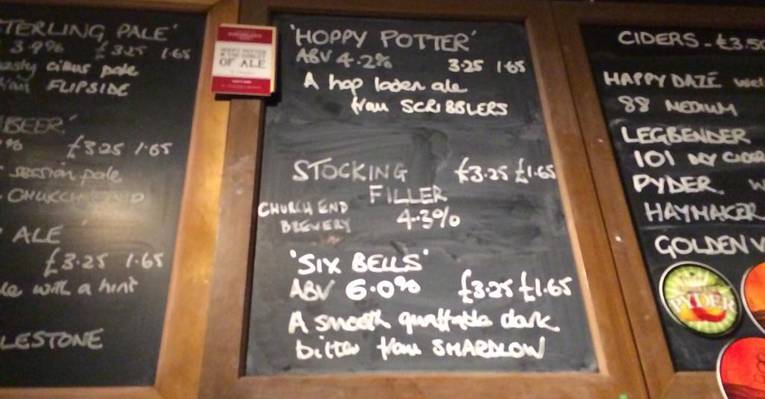 STERLING PALE'
3.9% £3.25 1.65
citrus pale
from FLIPSIDE
BEER'
% £3.25 1.65
session pale
CHURCH END
ALE
£3.25 1.65
with a hint
LESTONE
OF ALE
'HOPPY POTTER'
ABV 4.2% 3.25 1.65
A hop laden ale
from SCRIBBLERS
STOCKING £3.25 £1.65
FILLER
CHURCH END
BREWERY 4.3%
'SIX BELLS'
ABV 6.0% £3.25 £1.65
A smooth quaffable dark
bitter from SHARDLOW
CIDERS - £3.5
HAPPY DAZE
88 MEDIUM
LEGBENDER
101 DRY CIDER
PYDER
HAYMAKER
GOLDEN V
PYDER